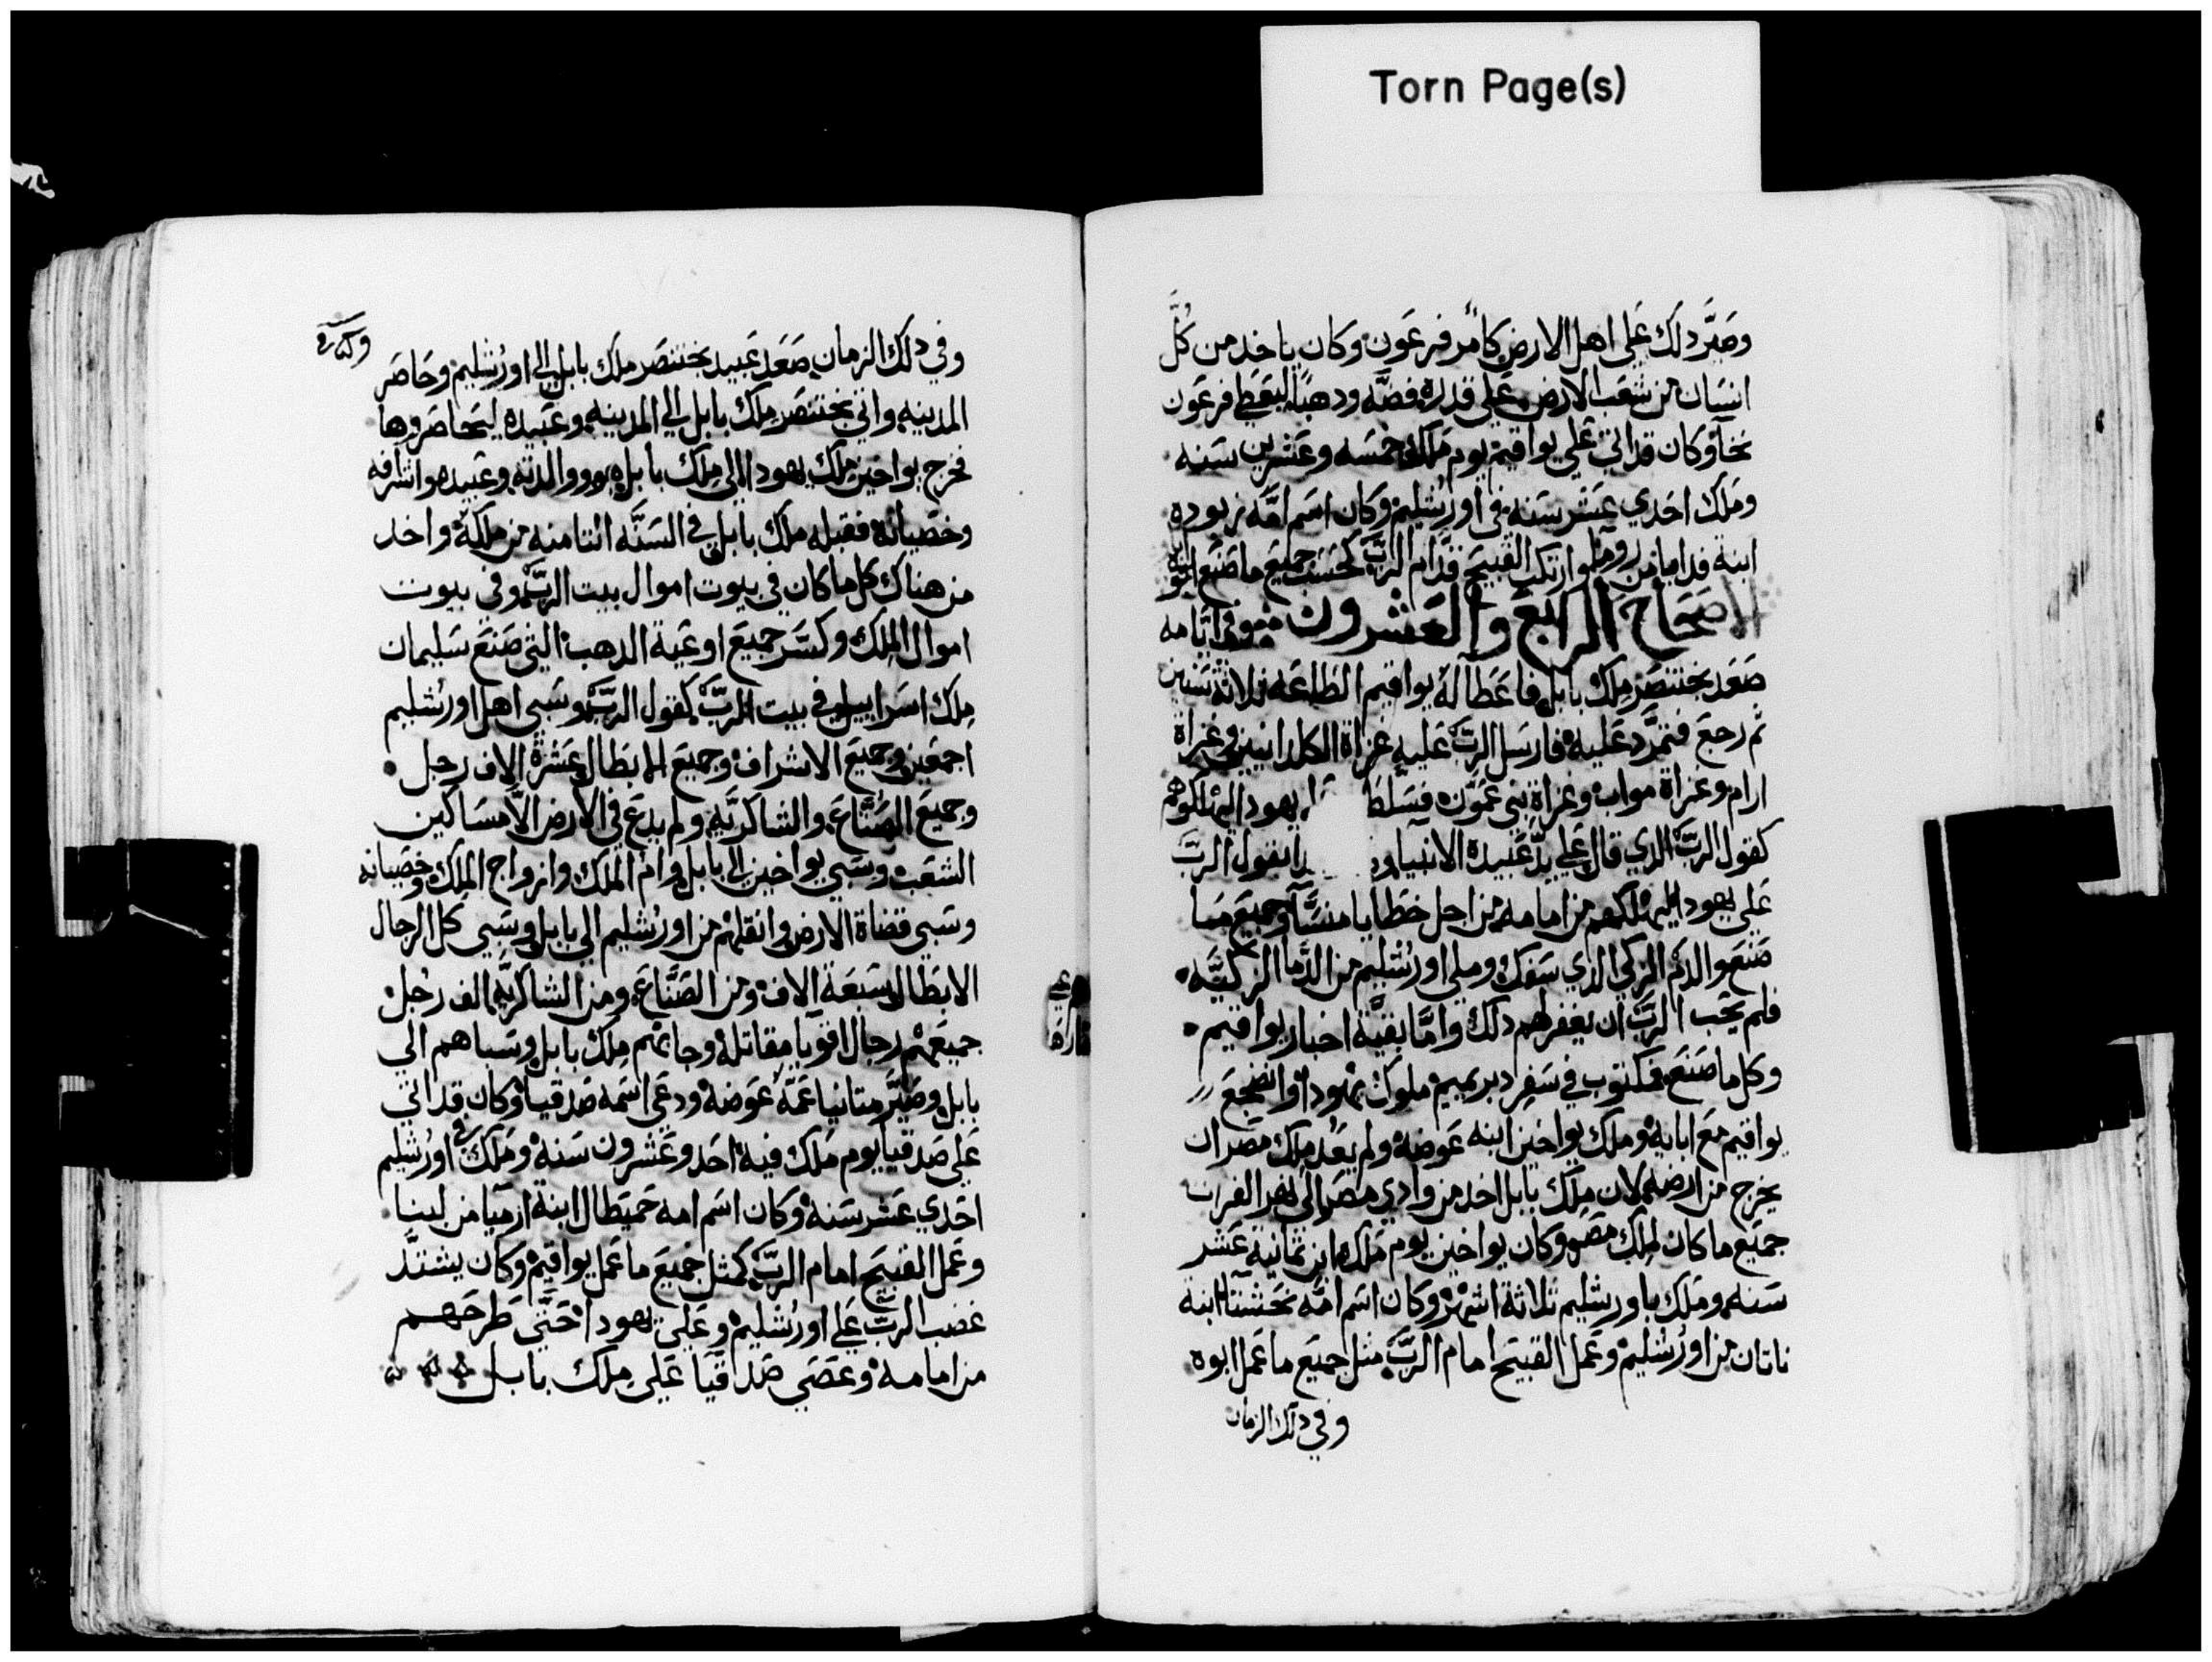 Torn Page(s)
وصَيَّر ذلك عَلي اهل الارض كامر فرعَون وكان ياخد من كُلّ
انسَان من شعَب الارض عَلي قدره فضّه ودهبًا ليعَطي فرعَون
نخآو وكان قد اتي عَلي يواقيم يوم مَلك خمسَه وعَشرين سَنه
ومَلك احَدي عَشر سَنه في اورُشليم وكان اسَم امَّه زبوده
ابنة فدايا من روما وارتكب القبيَح قدام الربّ كحَسَب جميعَ ما صَنعَ ابوه
الاصَحَاح الرابَع والعَشرون وفي ايّامه
صَعَد بختنصَر مِلك بابل فاعَطا لهُ يواقيم الطاعَه ثلاثة سَنين
ثم رجعَ فتمرَّد عَليه فارسَل الربّ عَليه غزاة الكلدانيين وغزاة
ارام وغزاة مواب وغزاة بني عَمّون فسَلّط يهودا ليهلكوهم
كقول الربّ الذي قال عَلي يدّ عَبيده الانبيا بقول الربّ
عَلي يهودا ليهلكهم من امامه من اجل خطايا منسَّا وجميعَ مَا
صَنعَ والدَم الزكي الذي سَفك وملي اورُشليم من الدَّما الزكيَّه
فلم يحَب الربّ ان يغفر لهم ذلك وامَّا بقيَّة اخبار يواقيم
وكل ما صَنعَ فمكتوب في سَفِر دبريميم ملوك يهودا وانضجعَ
يواقيم معَ ابايه ومَلك يواخين ابنه عَوضه ولم يعَد ملِك مصَر ان
يخرج من ارضه لان مِلك بابل اخد من وادي مصَر الي نهر الفرات
جميعَ ما كان لملِك مصَر وكان يواخين يوم مَلك ابن ثمانية عَشر
سَنه ومَلك باورشليم ثلاثة اشهر وكان اسَم امّه نحَشتآ ابنة
ناتان من اورُشليم وعَمل القبيَح امام الربّ مثل جميَع ما عَمل ابوه
وفي ذلك الزمان
وفي ذلك الزمان صَعَد عَبيد بختنصَر ملِك بابل الي اورُشليم وحَاصَر
المدينه واتي بختنصَر مِلك بابل الي المدينه وعَبيده ليحَاصَروها
فخرج يواخين مِلك يهودا الي مِلك بابل هو ووالدته وعَبيده واشرافه
وخصَيانه فقبله ملِك بابل في السَنَّه الثامنه من مَلكه واخد
من هناك كل ما كان في بيوت اموال بيت الربّ وفي بيوت
اموال المِلك وكسَّر جميعَ اوعَية الدهب التي صَنعَ سَليمان
مِلك اسَراييل في بيت الربّ كقول الربّ وسَبي اهل اورُشليم
اجمعَين وجميَع الاشراف وجميَع الابطال عَشرة الاف رجل
وجميَع الصَّناعَ والشاكريَّه ولم يدعَ في الارض الّا مسَاكين
الشعَب وسَبي يواخين الي بابل وام المَلك وازواج المَلك وخصَيانه
وسَبي قضاة الارض وانقلهم من اورُشليم الي بابل وسَبي كل الرجال
الابطال سَبعَة الاف ومن الصَّناعَ ومن الشاكريَّه الف رجُل
جميعَهم رجال اقويا مقاتله وجابهم مِلك بابل وسَباهم الي
بابل وصَيَّر متانيا عَمّه عَوضه ودعَي اسَمه صَدقيا وكان قد اتي
عَلي صَدقيا يوم مَلك فيه احَد وعَشرون سَنه ومَلك في اورُشليم
احَدي عَشر سَنه وكان اسَم امه حَميَطال ابنة ارميا من لبنا
وعَمل القبيَح امام الربّ كمثل جميعَ ما عَمل يواقيم وكان يشتدّ
غضب الربّ عَلي اورُشليم وعَلي يهودا حَتَّي طرحَهم
من امامه وعَصَي صَداقيا عَلي مِلك بابل